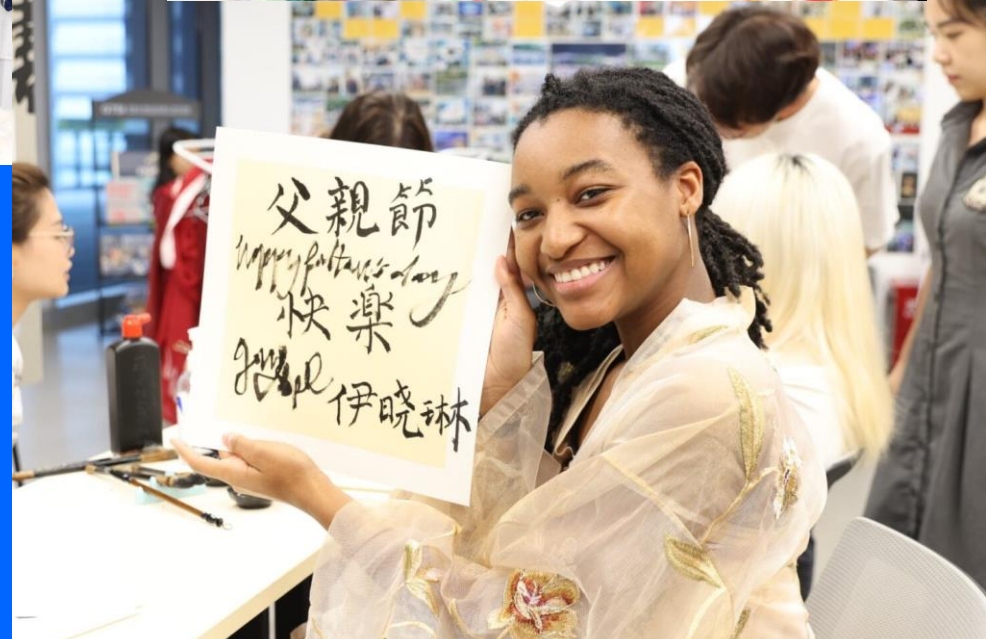 父親節
Happy father's day
快楽
伊晓琳